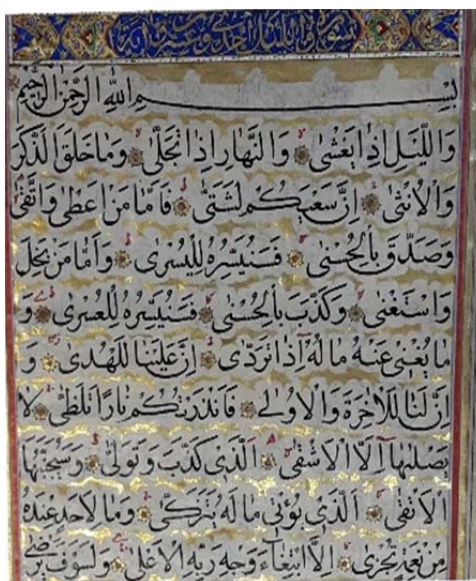 سورة والليل احدى وعشرون اية
بِسْمِ اللهِ الرَّحْمٰنِ الرَّحِيمِ
وَاللَّيْلِ اِذَا يَغْشٰى وَالنَّهَارِ اِذَا تَجَلّٰى وَمَا خَلَقَ الذَّكَرَ
وَالْاُنْثٰى اِنَّ سَعْيَكُمْ لَشَتّٰى فَاَمَّا مَنْ اَعْطٰى وَاتَّقٰى
وَصَدَّقَ بِالْحُسْنٰى فَسَنُيَسِّرُهُ لِلْيُسْرٰى وَاَمَّا مَنْ بَخِلَ
وَاسْتَغْنٰى وَكَذَّبَ بِالْحُسْنٰى فَسَنُيَسِّرُهُ لِلْعُسْرٰى وَ
مَا يُغْنِي عَنْهُ مَالُهُ اِذَا تَرَدّٰى اِنَّ عَلَيْنَا لَلْهُدٰى وَ
اِنَّ لَنَا لَلْاٰخِرَةَ وَالْاُولٰى فَاَنْذَرْتُكُمْ نَارًا تَلَظّٰى لَا
يَصْلٰيهَا اِلَّا الْاَشْقٰى اَلَّذِي كَذَّبَ وَتَوَلّٰى وَسَيُجَنَّبُهَا
الْاَتْقٰى اَلَّذِي يُؤْتِي مَالَهُ يَتَزَكّٰى وَمَا لِاَحَدٍ عِنْدَهُ
مِنْ نِعْمَةٍ تُجْزٰى اِلَّا ابْتِغَاءَ وَجْهِ رَبِّهِ الْاَعْلٰى وَلَسَوْفَ يَرْضٰى